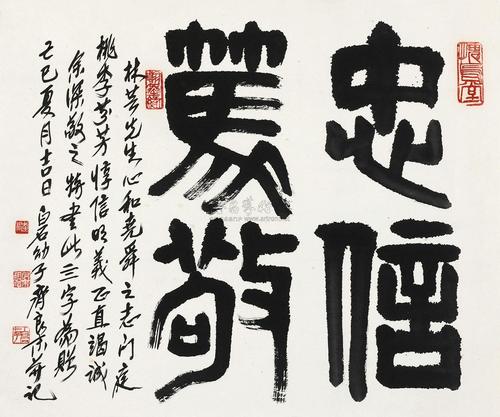 忠信
篤敬
林芸先生心和堯舜之志門庭
桃李芬芳惇信明義正直竭誠
余深敬之特書此三字為贈
己巳夏月吉日白石幼子齊良末并記